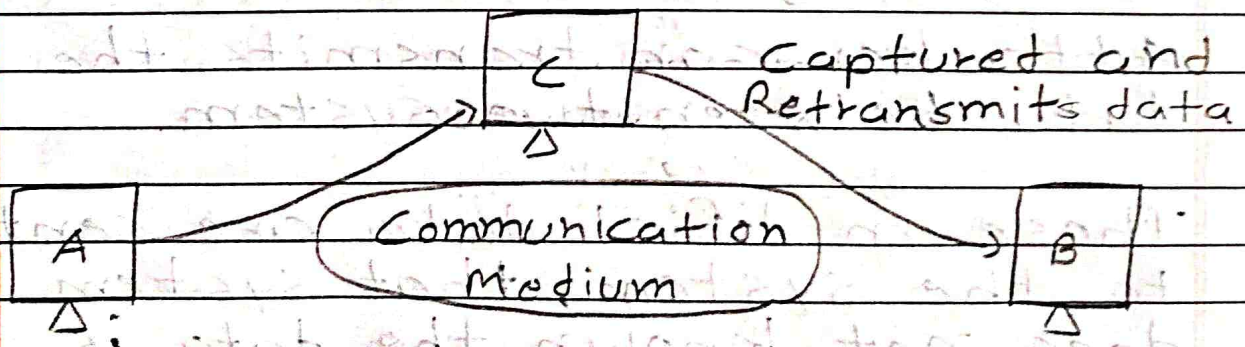 C
Captured and
Retransmits data
A
Communication
Medium
B